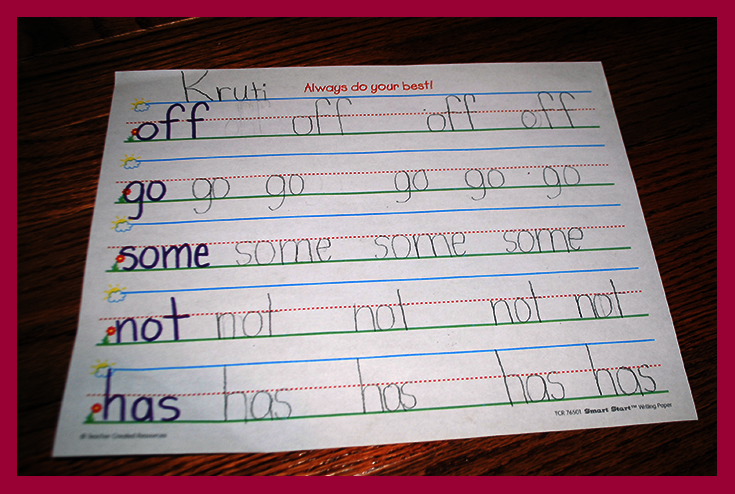 Kruti Always do your best!
off off off off
go go go go go go
some some some some
not not not not not
has has has has has
TCR 76501 Smart Start™ Writing Paper
© Teacher Created Resources